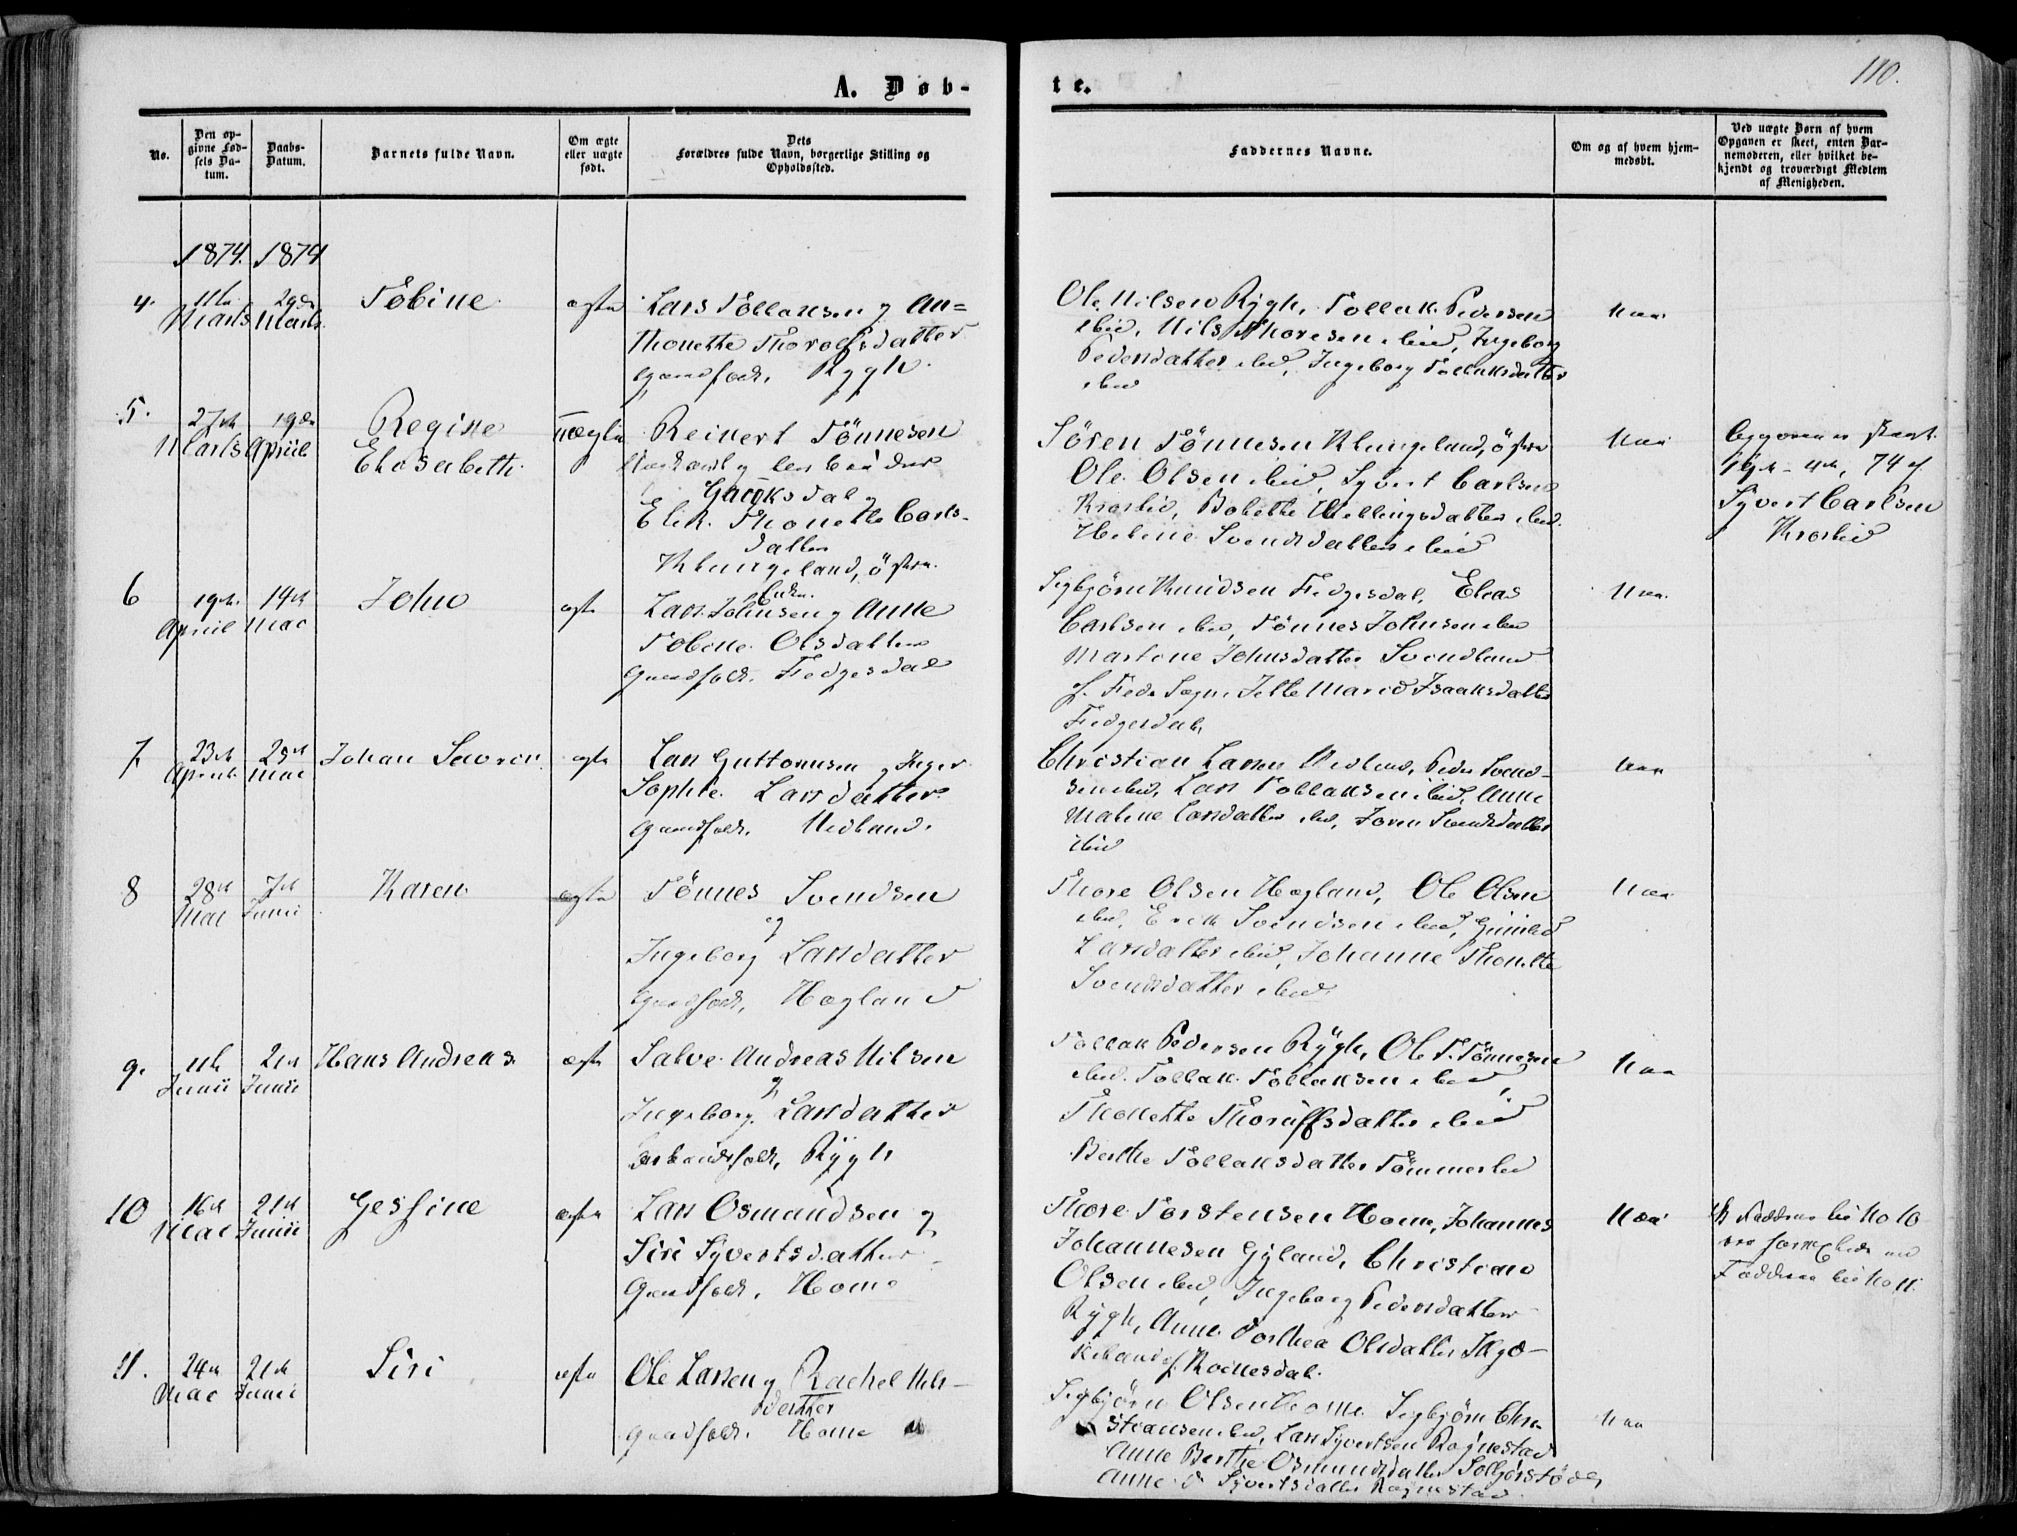 110.
A. Døb-
te.
No.
Den op-
givne Fød-
sels Da-
tum.
Daabs-
Datum.
Barnets fulde Navn.
Om ægte
eller uægte
født.
Dets
Forældres fulde Navn, borgerlige Stilling og
Opholdssted.
Faddernes Navne.
Om og af hvem hjem-
medøbt.
Ved uægte Børn af hvem
Opgaven er skeet, enten Bar-
nemoderen, eller hvilket be-
kjendt og troværdigt Medlem
af Menigheden.
1874. 1874
4.
11te
Marts
29de
Marts
Tobine
ægte
Lars Tollaksen og An=
Thonette Thorolfsdatter
Gaardfolk, Rygh.
Ole Nilsen Rygh, Tollak Pedersen
ibid, Nils Thoresen ibid, Ingeborg
Pedersdatter ibid, Ingeborg Tollaksdatter
ibid
5.
27de
Marts
19de
April
Regine
Elisabeth
uægte
Reinert Tønnesen
og
Elik. Thonette Carls-
datter
Klungeland, østre.
Søren Tønnesen Klungeland, østre
Ole Olsen ibid, Syvert Carlsen
Kroslid, Bolette Hellingsdatter ibid.
Helene Svendsdatter ibid
Opgaven er skeet
19de - 4de, 74 af
Syvert Carlsen
Kroslid
6
19de
April
14de
Mai
John
ægte
Lars Johnsen og Anne
Tobine Olsdatter
Gaardfolk. Fidgesdal
Sigbjørn Knudsen Fidgesdal, Elias
Carlsen ibid, Tønnes Johnsen ibid
Martine Johnsdatter Svindland
af Fede Sogn, Jette Marie Isaaksdatter
Fidgesdal,
7
23de
April
25de
Mai
Johan Severin
ægte
Lars Guttormsen og Inger
Sophie Larsdatter
Gaardfolk. Midland.
Christian Larsen Midland, Peder Svend-
sen ibid, Lars Tollaksen ibid, Anne
Malene Larsdatter ibid, Joren Svendsdatter
ibid
8
28de
Mai
7de
Junii
Karen
ægte
Tønnes Svendsen
og
Ingeborg Larsdatter
Gaardfolk, Høgland
Thore Olsen Høgland, Ole Olsen
ibid, Erik Svendsen ibid, Gunild
Larsdatter ibid, Johanne Thonette
Svendsdatter ibid.
9.
11te
Junii
21de
Junii
Hans Andreas
ægte
Salve Andreas Nilsen
og
Ingeborg Larsdatter
Rygh
Tollak Pedersen Rygh, Ole T. Tønnesen
ibid. Tollak Tollaksen ibid,
Thonette Thorolfsdatter ibid
Berthe Tollaksdatter Tømmerlid
10
16de
Mai
21de
Junii
Gessine
ægte
Lars Osmundsen og
Siri Syvertsdatter
Gaardfolk, Home
Thore Torstensen Home, Johannes
Johannesen Gyland, Christian
Olsen ibid, Ingeborg Pedersdatter
Rygh, Anne Dorthea Olsdatter
Fadderne til No 10
Fadderne til No 11.
11.
24de
Mai
21de
Junii
Siri
ægte
Ole Larsen og Rachel Nils-
datter
Gaardfolk. Home
Sigbjørn Olsen Home Sigbjørn Chri-
stiansen ibid, Lars Syvertsen Røgnestad
Anne Berthe Osmundsdatter
Anne Syvertsdatter Røgnestad.